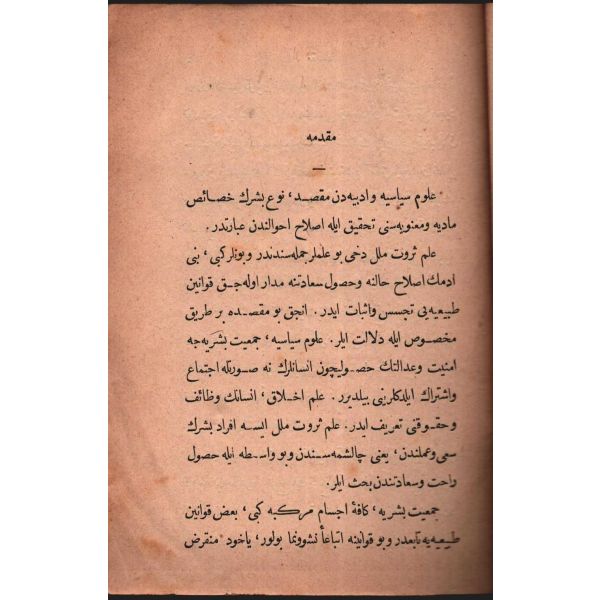 مقدمه
علوم سیاسیه و ادبیه‌دن مقصد، نوع بشرك خصائص
مادیه ومعنویه‌سنی تحقیق ایله اصلاح احوالندن عبارتدر.
علم ثروت ملل دخی بو علملر جمله‌سندندر وبونلر کبی، بنی
آدمك اصلاح حالنه وحصول سعادتنه مدار اوله‌جق قوانین
طبیعیه‌یی تجسس واثبات ایدر. انجق بو مقصده بر طریق
مخصوص ایله دلالت ایلر. علوم سیاسیه، جمعیت بشریه‌جه
امنیت وعدالتك حصولیچون انسانلرك نه صورتله اجتماع
واشتراك ایلدکلرینی بیلدیرر. علم اخلاق، انسانك وظائف
وحقوقنی تعریف ایدر. علم ثروت ملل ایسه افراد بشرك
سعی وعملندن، یعنی چالشمه‌سندن وبو واسطه ایله حصول
راحت وسعادتندن بحث ایلر.
جمعیت بشریه، کافهٔ اجسام مرکبه کبی، بعض قوانین
طبیعیه‌یه تابعدر وبو قوانینه اتباعاً نشوونما بولور، یاخود منقرض